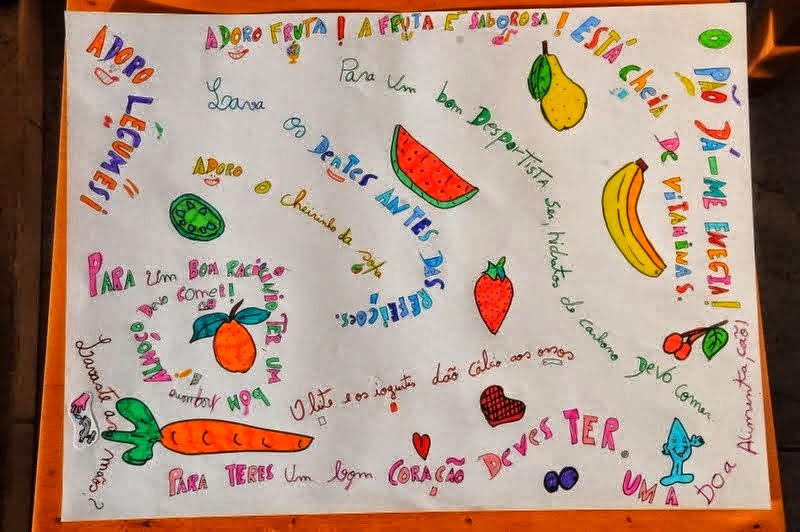 ADORO FRUTA! A FRUTA É SABOROSA! ESTÁ CHEIA DE VITAMINAS.
O PÃO DÁ-ME ENEGIA!
ADORO LEGUMES!
Para um bom DESPORTISTA ser, hidratos de carbono DEVO comer.
Lava os DENTES ANTES DAS REFEIÇÕES.
ADORO O cheirinho da sopa
PARA um BOM RACIOCÍNIO TER UM BOM pequeno ALMOÇO DEVO COMER!
O leite e os iogurtes dão cálcio aos ossos
Lavaste as mãos?
PARA TERES um bom CORAÇÃO DEVES TER.
UMA boa Alimentação!